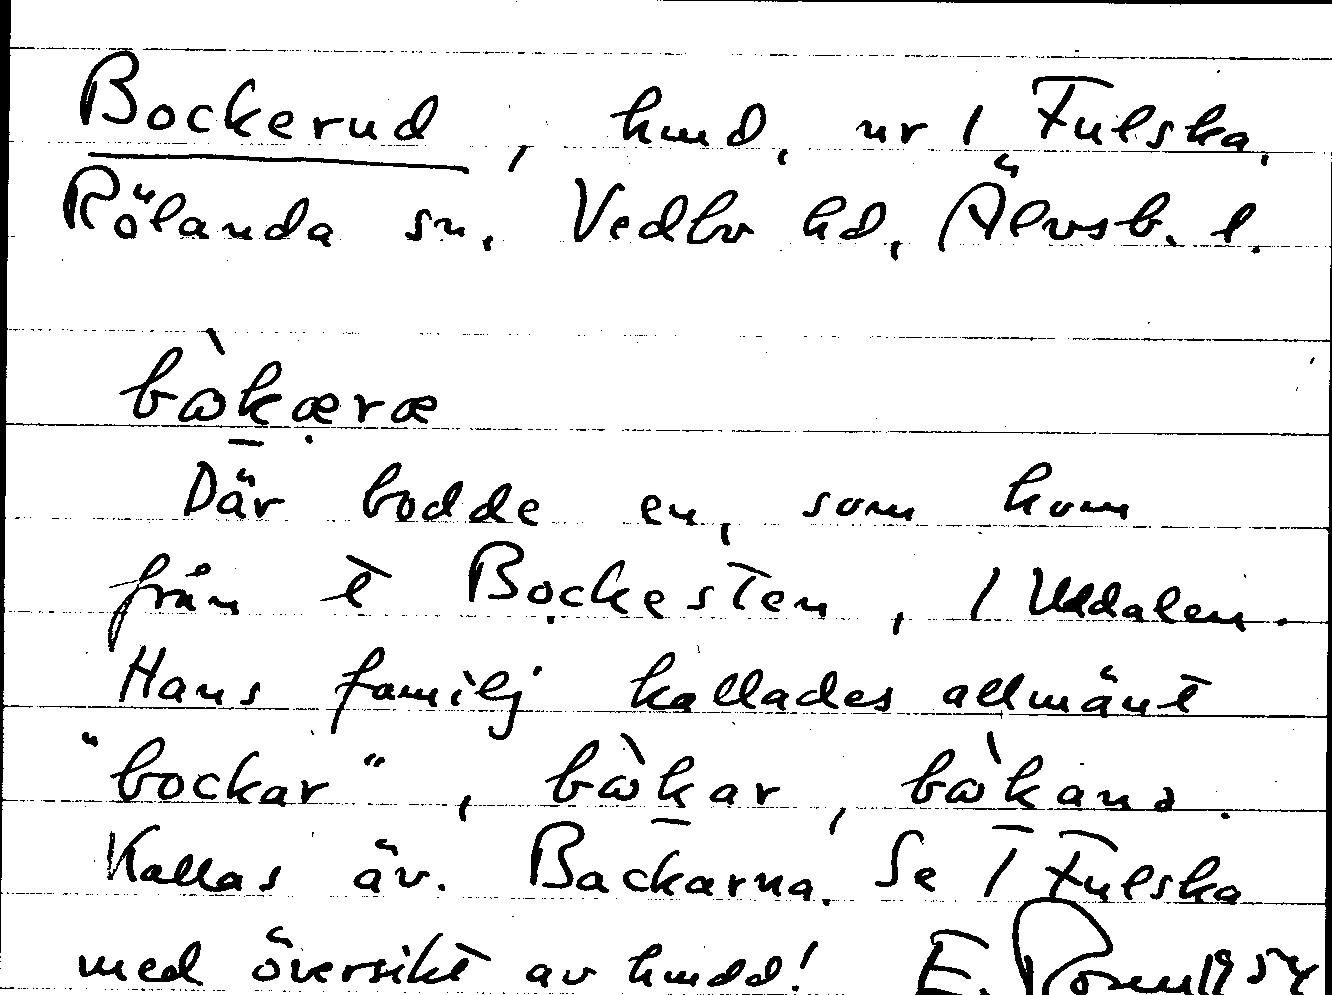 Bockerud, hmd, ur 1 Fulska,
Rölanda sn, Vedbo hd, Älvsb. l.
bɷ̀kæræ
Där bodde en, som kom
från t Bockesten, 1 Uddalen.
Hans familj kallades allmänt
"bockar", bɷ̀kar, bɷ̀kana.
Kallas äv. Backarna. Se 1 Fulska
med översikt av hmdd! E. 1954